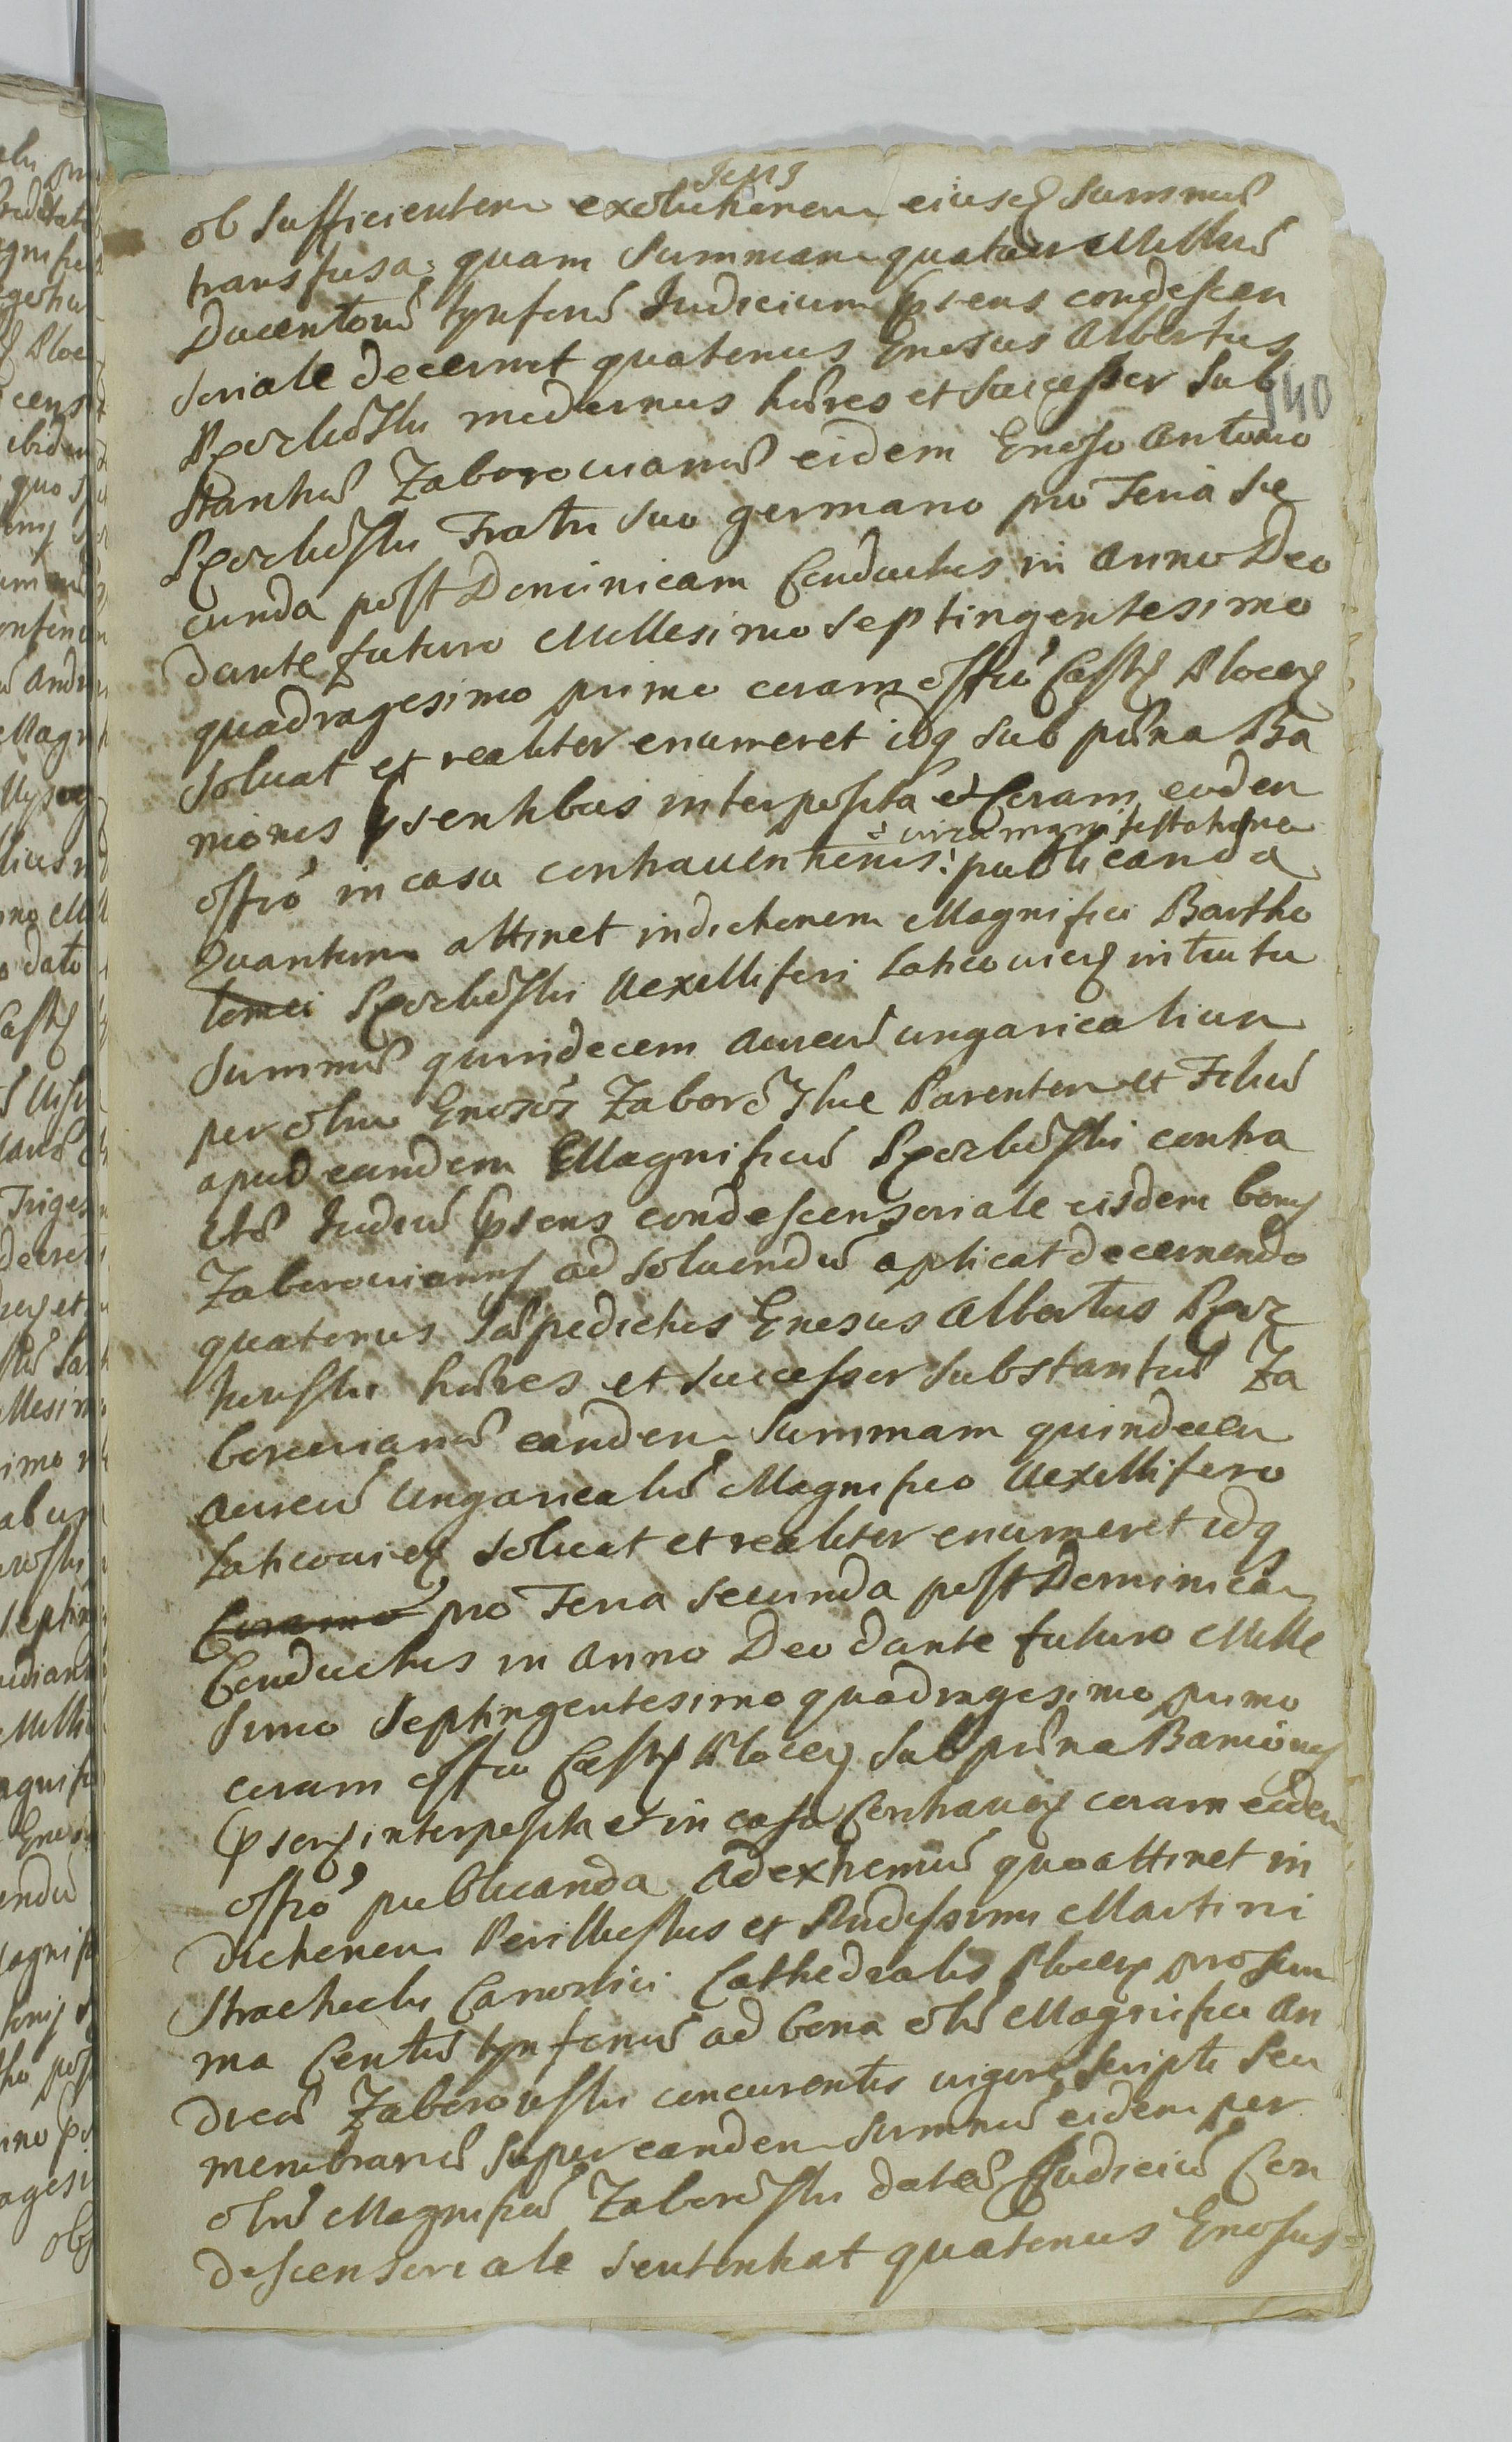 ob sufficientem exolutionem eiusd summæ
transfusa, quam summam quatuor Millium
Ducentorū tynforū Iudicium psens condescen
soriale decernit quatenus Gnosus Albertus
modernus hæres et successor sub
140
stantiæ Zaborovianæ eidem Gnoso Antonio
Fratri suo germano pro Feria se
cunda post Dominicam Conductus in Anno Deo
dante futuro Millesimo septingentesimo
quadragesimo primo coram offō Castr Plocen
solvat et realiter enumeret idq sub pæna Ba
nionis psentibus interposita et Coram eodem
circa manifestationem
offō in casu contraventionis publicanda
Quantum attinet indictionem Magnifici Bartho
lomei Vexilliferi Laticovien intuitu
summæ quindecim aureorū ungaricalium
per olim Gnosos Zaborowskie Parentem et Filiū
apud eundem Magnificū contra
ctæ Iudiciū psens condescensoriale eisdem bonis
Zaborovianis ad solvendū aplicat decernendo
quatenus Gnosus Albertus
hæres et successor substantiæ Za
borovianæ eandem summam quindecim
aureorū Ungaricaliū Magnifico Vexillifero
Laticovien solvat et realiter enumeret idq
pro Feria secunda post Dominicam
Conductus in Anno Deo dante futuro Mille
simo septingentesimo quadragesimo primo
coram offō Castr Plocen sub pæna Banionis
psens interposita et in casu Contraven coram eodem
offō publicanda Ad extremū quo attinet in
dictionem Perillustris et Rndissimi Martini
Canonici Cathedralis Plocen pro sum
ma Centū tynforū ad bona olim Magnifici An
dreæ Zaborowski concurentis vigore scripti seu
membranæ super eandem summā eidem per
olim Magnificū Zaborowski datæ Iudiciū Con
descensoriale sententiat quatenus Gnosus